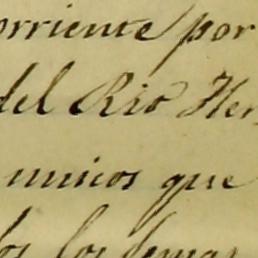 orriente por
del Rio Her
unicos que
los los demas